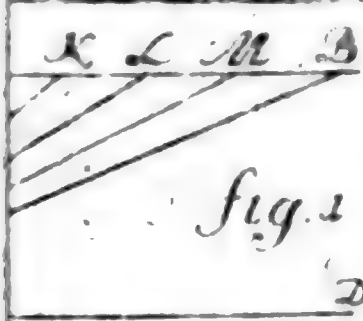 K L M B
fig. 1
D